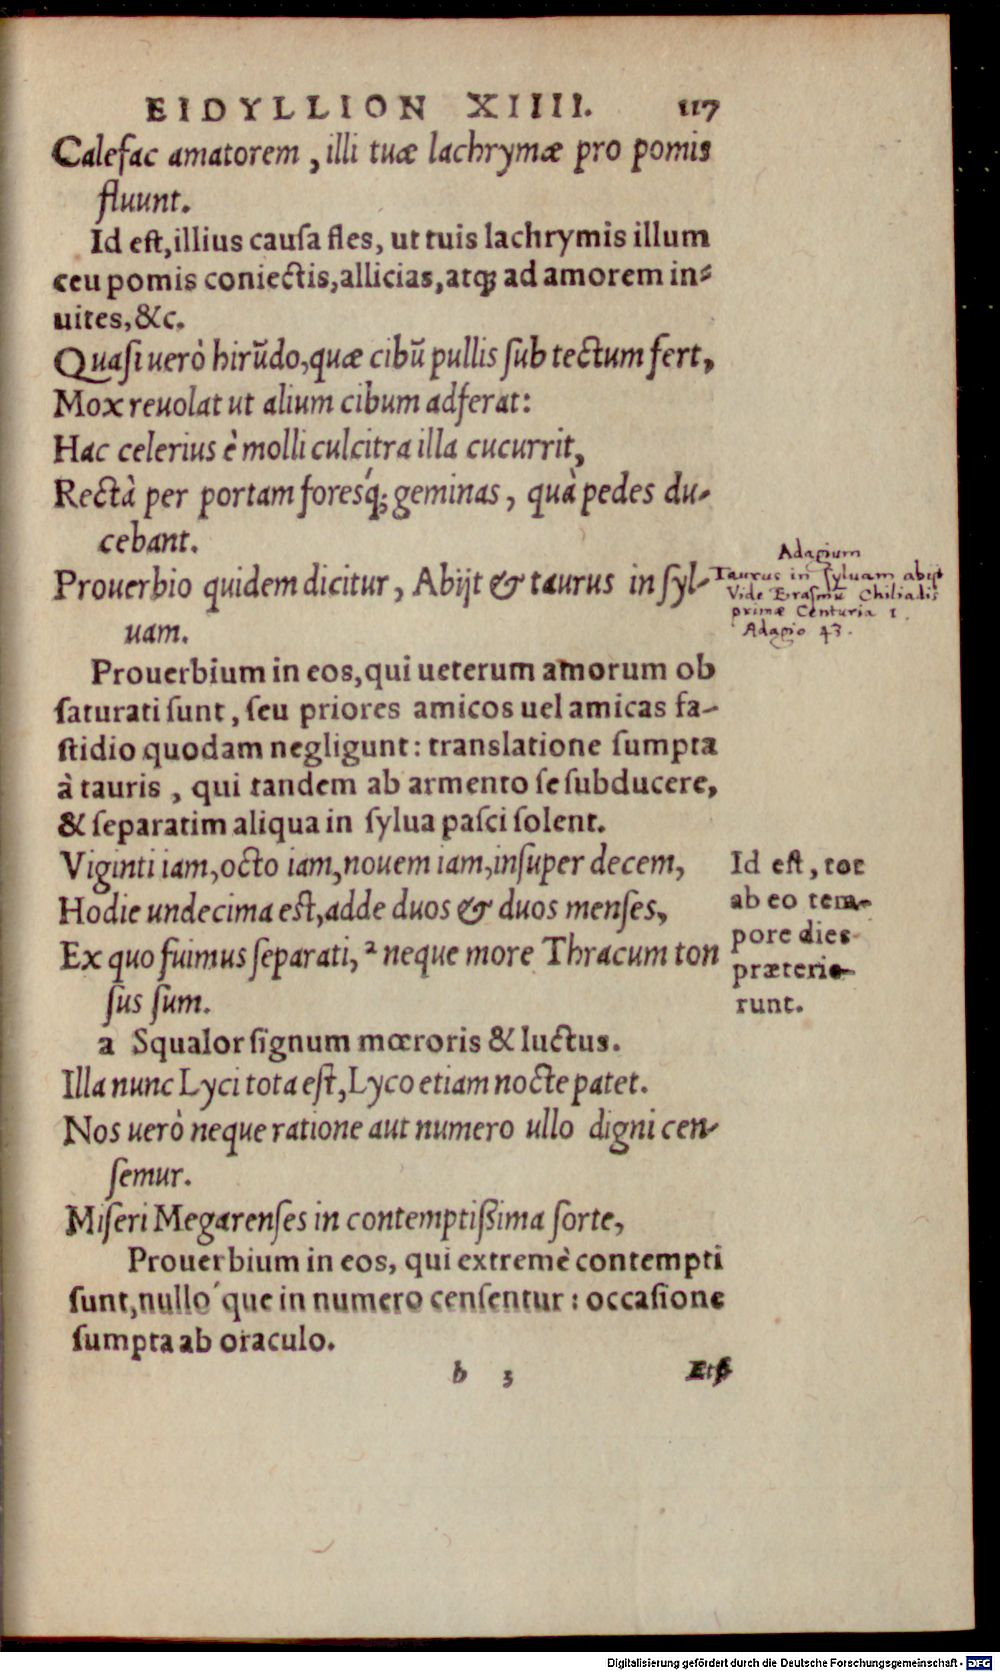 EIDYLLION XIIII. 117
Calefac amatorem, illi tuæ lachrymæ pro pomis
fluunt.
Id eſt, illius cauſa fles, ut tuis lachrymis illum
ceu pomis coniectis, allicias, atq; ad amorem in⸗
uites, &c.
Quaſi uerò hirũdo, quæ cibũ pullis ſub tectum fert,
Mox reuolat ut alium cibum adferat:
Hac celerius è molli culcitra illa cucurrit,
Rectà per portam foresq́; geminas, quà pedes du-
cebant.
Prouerbio quidem dicitur, Abijt & taurus in ſyl-
uam.
Adagium
Taurus in ſyluam abijt
Vide Eraſmũ Chiliadis
primæ Centuria 1.
Adagio 43.
Prouerbium in eos, qui ueterum amorum ob
ſaturati ſunt, ſeu priores amicos uel amicas fa-
ſtidio quodam negligunt: translatione ſumpta
à tauris, qui tandem ab armento ſe ſubducere,
& ſeparatim aliqua in ſylua paſci ſolent.
Viginti iam, octo iam, nouem iam, inſuper decem,
Hodie undecima eſt, adde duos & duos menſes,
Ex quo fuimus ſeparati, ² neque more Thracum ton
ſus ſum.
Id eſt, tot
ab eo tem-
pore dies
præterie-
runt.
a Squalor ſignum mœroris & luctus.
Illa nunc Lyci tota eſt, Lyco etiam nocte patet.
Nos uerò neque ratione aut numero ullo digni cen-
ſemur.
Miſeri Megarenſes in contemptißima ſorte,
Prouerbium in eos, qui extremè contempti
ſunt, nullo´que in numero cenſentur: occaſione
ſumpta ab oraculo.
b 3
Digitalisierung gefördert durch die Deutsche Forschungsgemeinschaft - DFG